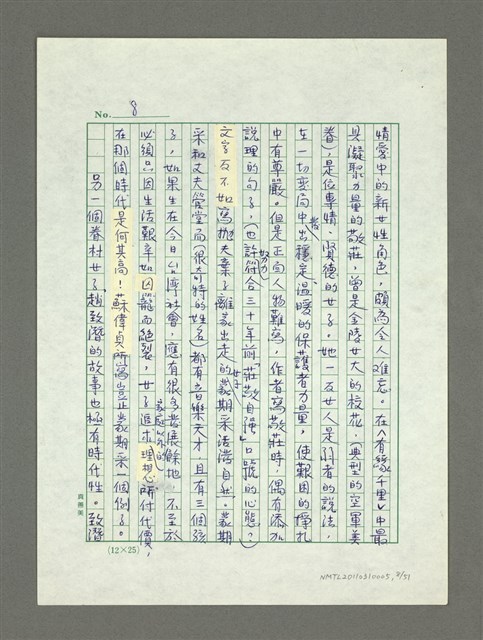 No. 8
情愛中的新女性角色，頗為令人難忘。在〈有緣千里〉中最
具凝聚力量的敬莊，曾是金陵女大的校花，（典型的空軍美
眷），是位專情、賢德的女子，她一反女人是弱者的說法，
在一切變局中散出穩定、溫暖的保護者力量，使艱困的掙扎
中有尊嚴。但是正面人物難寫，作者寫敬莊時，偶有添加
說理的句子，（也許努力符合三十年前「莊敬自強」口號的心態？）
文字反不如寫拋夫棄子離家出走的龔期采活潑自然。龔期
采和丈夫管堂而（很奇特的姓名）都有音樂天才，且有三個孩
子，如果生在今日台灣社會，應有很多發展餘地，不至於
必須只因生活艱辛如囚籠而絕裂，女子追求家庭以外的理想所付代價，
在那個時代是何其高！蘇偉貞所寫豈止龔期采一個例子。
另一個眷村女子趙致潛的故事也極有時代性。致潛
(12×25)
NMTL20110310005, 8/51